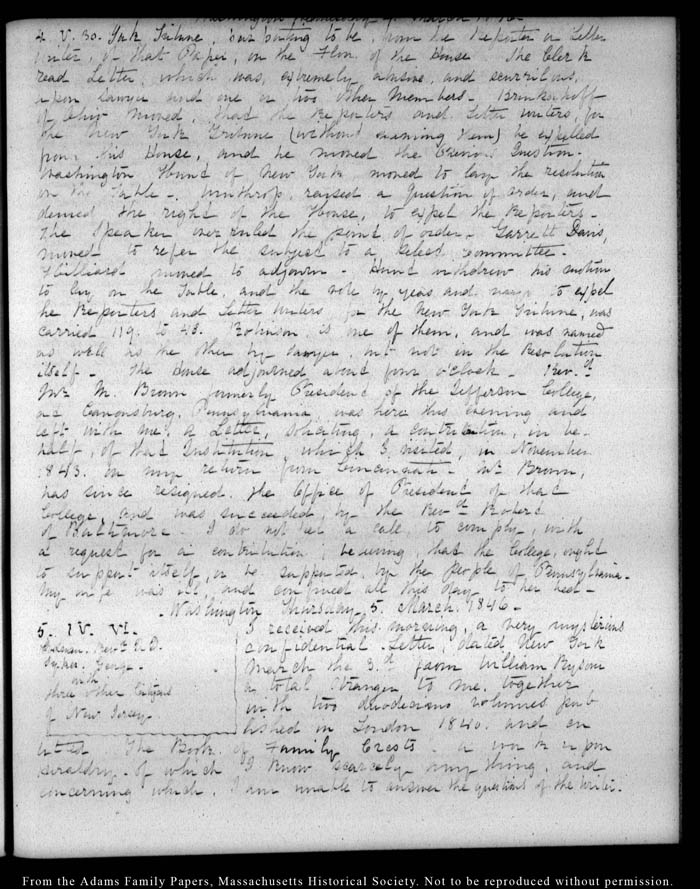 Washington Wednesday 4. March 1846.
4. V. 30. York Tribune, purporting to be, from the Reporter or Letter
writer, of that Paper, on the Floor of the House. The Clerk
read Letter, which was, extremely abusive, and scurrilous,
upon Sawyer and one or two other members. Brinkerhoff
of Ohio moved, that the Reporters and Letter writers, for
the New York Tribune (without naming them) be expelled
from this House, and he moved the Previous Question.
Washington Hunt of New York moved to lay the resolution
on the Table. Winthrop, raised a question of order, and
denied the right of the House, to expel the Reporters.
The Speaker over ruled the point of order. Garrett Davis,
moved to refer the subject to a select committee.
Hilliard moved to adjourn. Hunt withdrew his motion
to lay on the Table, and the vote by yeas and nays to expel
the Reporters and Letter writers, for the New York Tribune, was
carried 119. to 46. Robinson, is one of them, and was named
as well as the other by Sawyer, but not in the Resolution
itself. The House adjourned about four o'clock. Rev.d
Mr M. Brown formerly President of the Jefferson College,
at Canonsburg, Pennsylvania, was here this evening and
left with me, a Letter, soliciting, a contribution, in be-
half, of that Institution, which I visited, in November
1843. on my return from Cincinnati. Mr Brown,
has since resigned. the Office of President of that
College, and was succeeded, by the Revd
of Baltimore. I do not see a call, to comply, with
a request for a contribution, believing, that the College, ought
to support itself, or be supported, by the people of Pennsylvania.
My wife was ill, and confined all this day to her bed.
Washington Thursday 5. March. 1846.
5. IV. VI. I received this morning, a very mysterious
confidential Letter, dated New York
Sykes. George March the 3.d from William Ryson
with a total stranger to me, together
three other Citizens with two duodecimo volumes pub
of New Jersey lished in London 1840. and en
titled The Book. of Family Crests. a work upon
heraldry. of which I know scarcely any thing, and
concerning which, I am unable to answer the questions of the writer.
From the Adams Family Papers, Massachusetts Historical Society. Not to be reproduced without permission.